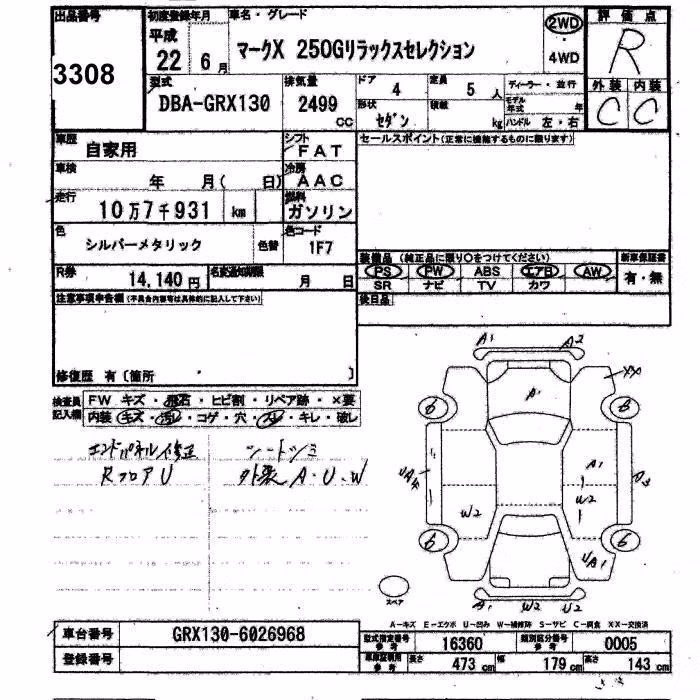 出品番号 初度登録年月 車名・グレード 2WD 評価点
3308 平成 22 6月 マークX 250Gリラックスセレクション 4WD R
型式 排気量 ドア 定員 ディーラー・並行 外装 内装
DBA-GRX130 2499 CC 4 5人 モデル年式 年 C C
形状 セダン 積載 kg ハンドル 左・右
車歴 自家用 シフト FAT セールスポイント(正常に機能するものに限ります)
車検 年 月( 日) 冷房 AAC
走行 10万7千931 km 燃料 ガソリン
色 シルバーメタリック 色替 色コード 1F7
装備品 (純正品に限り○をつけてください) 新車保証書
PS PW ABS エアB AW 有・無
SR ナビ TV カワ
R券 14,140円 名変通知期限 月 日 後日品
注意事項申告欄 (不具合内容等は具体的に記入して下さい)
修復歴 有〔箇所 〕
検査員記入欄 FW キズ・飛石・ヒビ割・リペア跡・×要
内装 キズ・汚レ・コゲ・穴・スレ・キレ・破レ
エンドパネル修正 シートシミ
RフロアU 外装A・U・W
A1 A2
A1 XX
6 6
UA4 A1 A3
W2 W2
6 6
UA1
スペア A1 W2 U2
A－キズ E－エクボ U－凹み W－補修跡 S－サビ C－腐食 XX－交換済
車台番号 GRX130-6026968 型式指定番号 参考 16360 類別区分番号 参考 0005
登録番号 車庫証明用 参考 長さ 473 cm 幅 179 cm 高さ 143 cm